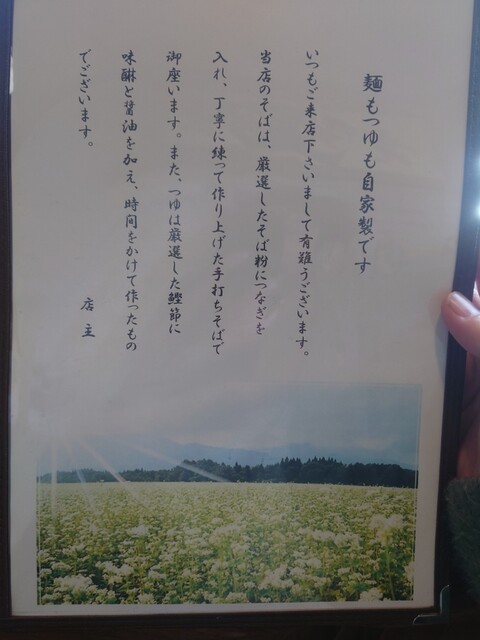 麺もつゆも自家製です
いつもご来店下さいまして有難うございます。
当店のそばは、厳選したそば粉につなぎを
入れ、丁寧に練って作り上げた手打ちそばで
御座います。また、つゆは厳選した鰹節に
味醂と醤油を加え、時間をかけて作ったもの
でございます。
店主